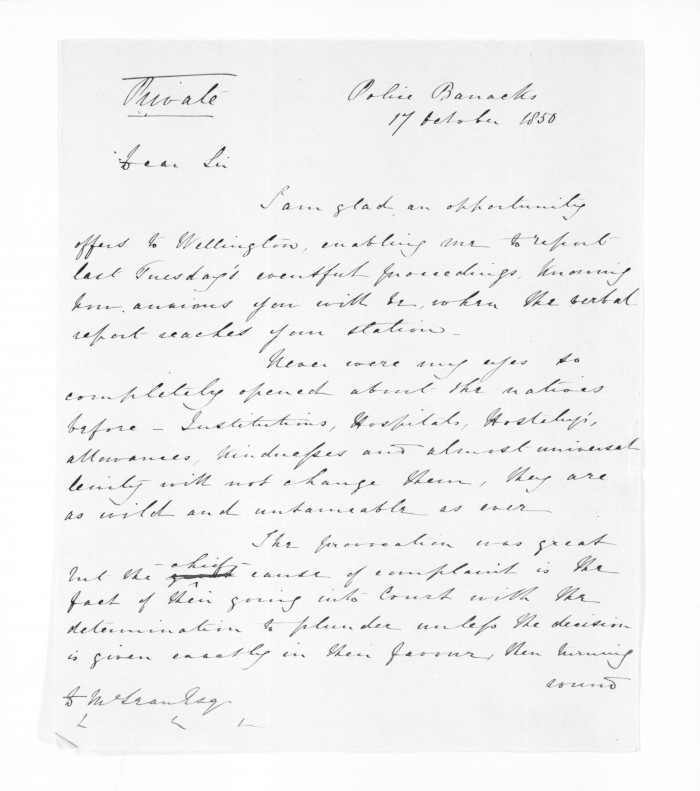 Private
Police Barracks
17 October 1850
Dear Sir
I am glad an opportunity
offers to Wellington, enabling me to report
last Tuesday's eventful proceedings, knowing
how anxious you will be, when the verbal
report reaches your station —
Never were my eyes so
completely opened about the natives
before — Institutions, Hospitals, Hostelry's,
allowances, kindnesses and almost universal
lenity will not change them, they are
as wild and untameable as ever
The provocation was great
but the chief cause of complaint is the
fact of their going into Court with the
determination to plunder unless the decision
is given exactly in their favour, then turning
round
D McLean Esq.